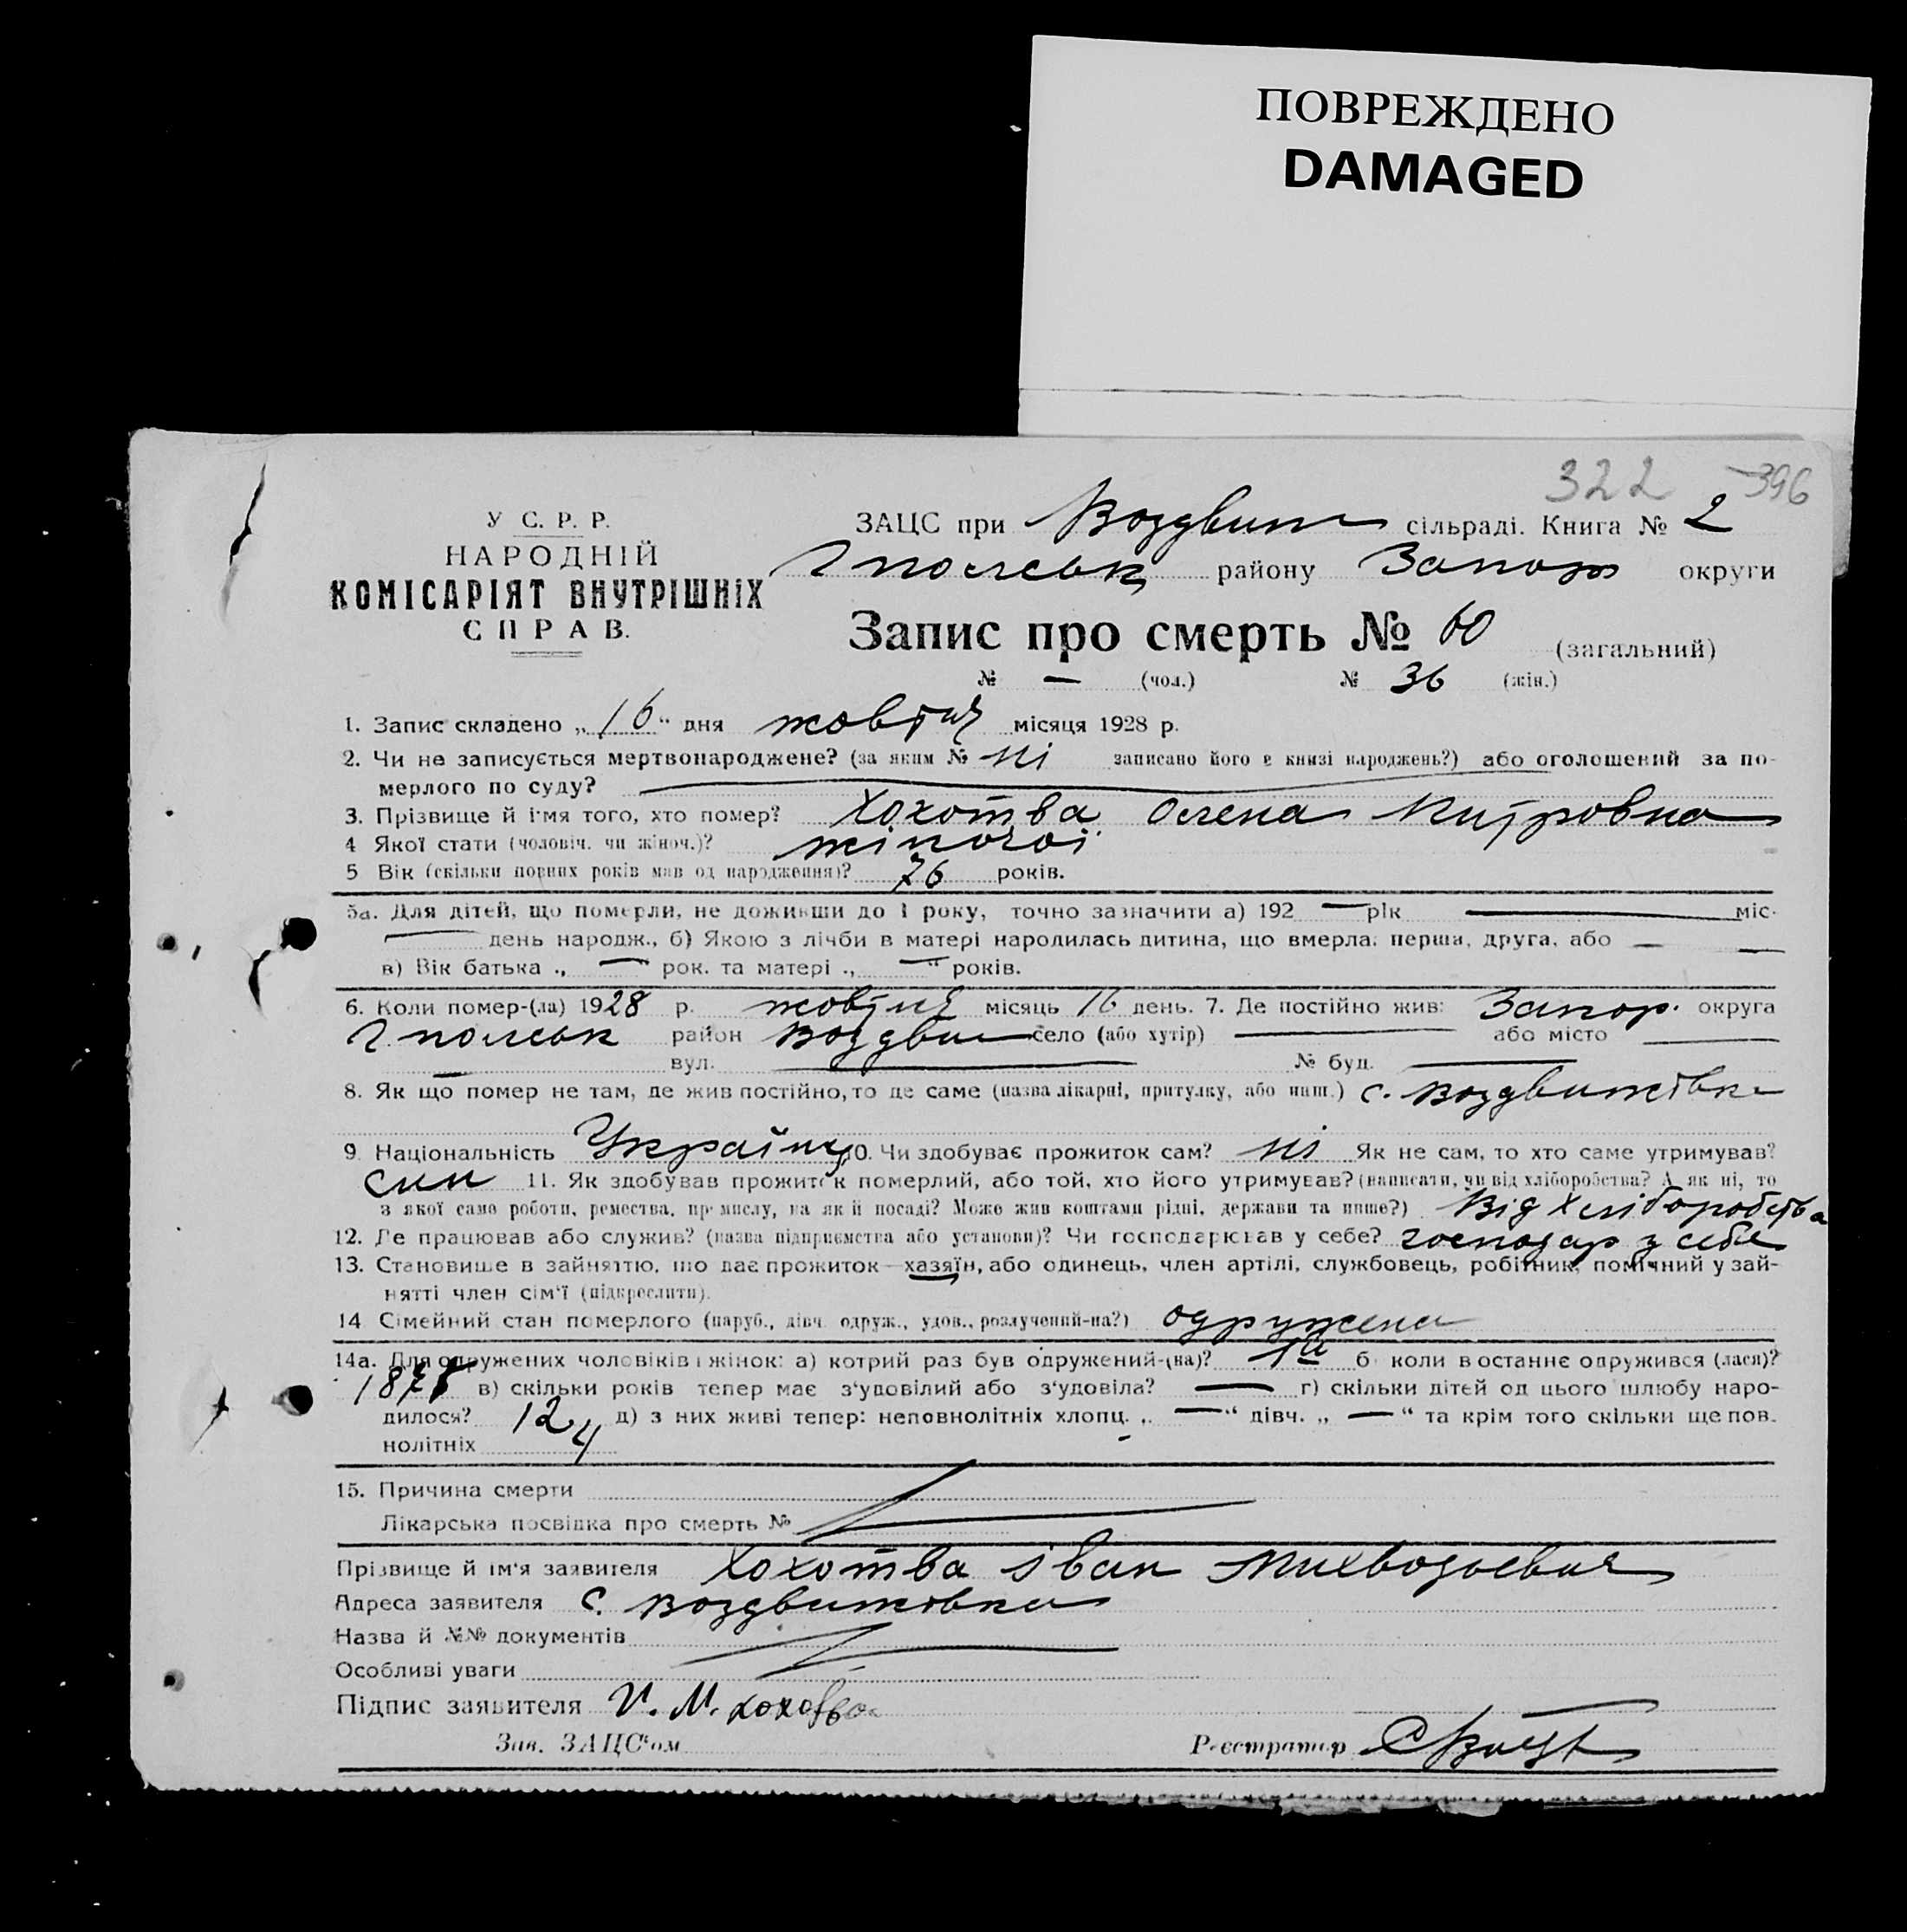 ПОВРЕЖДЕНО
DAMAGED
322 396
У С. Р. Р.
НАРОДНІЙ
КОМІСАРІЯТ ВНУТРІШНІХ
СПРАВ.
ЗАЦС при Воздвиж сільраді. Книга № 2
Гполськ району Запож округи
Запис про смерть № 60 (загальний)
№ — (чол.) № 36 (жін.)
1. Запис складено „16“ дня жовтня місяця 1928 р.
2. Чи не записується мертвонароджене? (за яким № ні записано його в книзі народжень?) або оголошений за по-
мерлого по суду?
3. Прізвище й ім'я того, хто помер? Хохотва Олена Митровна
4 Якої стати (чоловіч. чи жіноч.)? жіночої
5 Вік (скільки повних років мав од народження)? 76 років.
5а. Для дітей, що померли, не доживши до 1 року, точно зазначити а) 192 — рік — міс.
— день народж., б) Якою з лічби в матері народилась дитина, що вмерла: перша, друга, або —
в) Вік батька „ — “ рок. та матері „ — “ років.
6. Коли помер-(ла) 1928 р. жовтня місяць 16 день. 7. Де постійно жив: Запор. округа
Гполськ район Воздвиж село (або хутір) — або місто —
— вул. — № буд. —
8. Як що помер не там, де жив постійно, то де саме (назва лікарні, притулку, або инш.) с. Воздвижівка
9. Національність Україн 10. Чи здобуває прожиток сам? ні Як не сам, то хто саме утримував?
син 11. Як здобував прожиток померлий, або той, хто його утримував? (написати, чи від хліборобства? А як ні, то
з якої само роботи, ремества, промислу, на якій посаді? Може жив коштами рідні, держави та инше?) Від Хліборобства
12. Де працював або служив? (назва підприємства або установи)? Чи господарював у себе? господар у себе
13. Становище в зайняттю, що дає прожиток—хазяїн, або одинець, член артілі, службовець, робітник, помічний у зай-
нятті член сім'ї (підкреслити).
14 Сімейний стан померлого (паруб., дівч. одруж., удов., розлучений-на?) одружена
14а. Для одружених чоловіків і жінок: а) котрий раз був одружений-(на)? 1й б) коли в останнє одружився (лася)?
в) скільки років тепер має з'удовілий або з'удовіла? — г) скільки дітей од цього шлюбу наро-
дилося? 12 д) з них живі тепер: неповнолітніх хлопц. „ — “ дівч. „ — “ та крім того скільки ще пов-
нолітніх 4
15. Причина смерти
Лікарська посвідка про смерть №
Прізвище й ім'я заявителя Хохотва Іван
Адреса заявителя с. Воздвижівка
Назва й №№ документів
Особливі уваги
Підпис заявителя И. М. Хохотва
Зав. ЗАЦС'ом Реєстратор